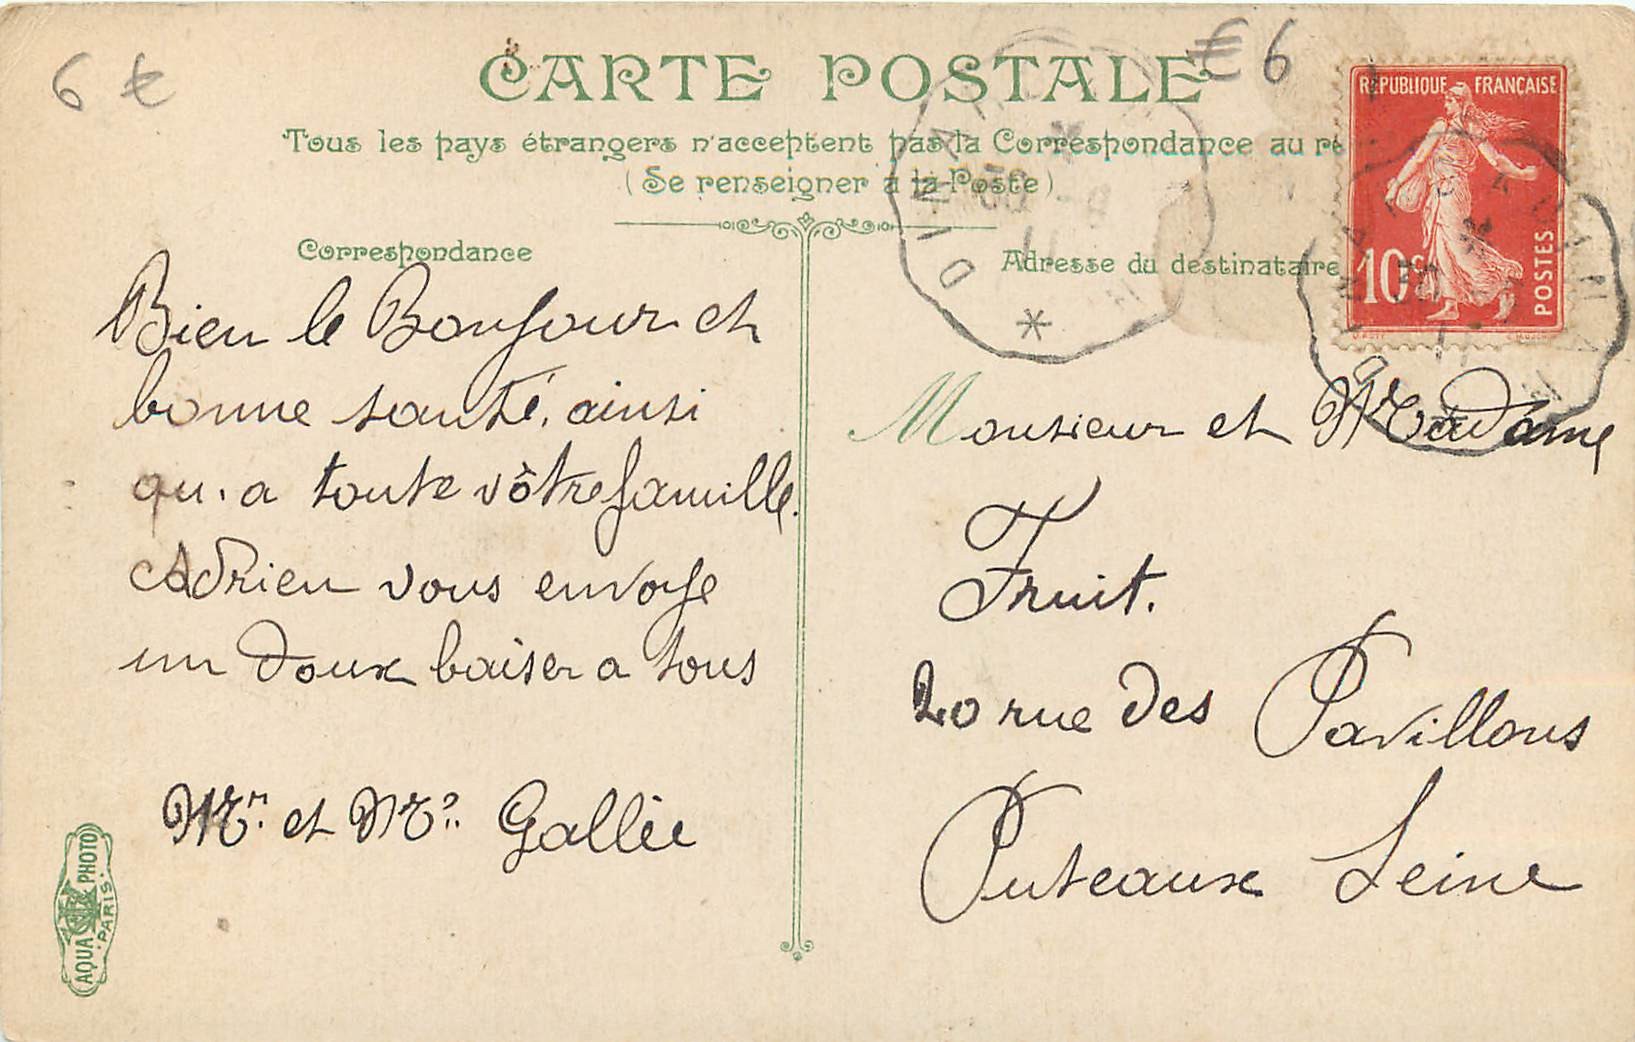 6 €
€ 6
CARTE POSTALE
Tous les pays étrangers n'acceptent pas la Correspondance au re
(Se renseigner à la Poste)
Correspondance
Bien le Bonjour et
bonne santé, ainsi
qu'a toute vôtre famille.
Adrien vous envoye
un doux baiser a tous
Mr. et Me. Gallée
AQUA PHOTO
PARIS
Adresse du destinataire
REPUBLIQUE FRANÇAISE
10c
POSTES
DINA
30
11
Monsieur et Madame
Fruit.
20 rue des Pavillons
Puteaux Seine